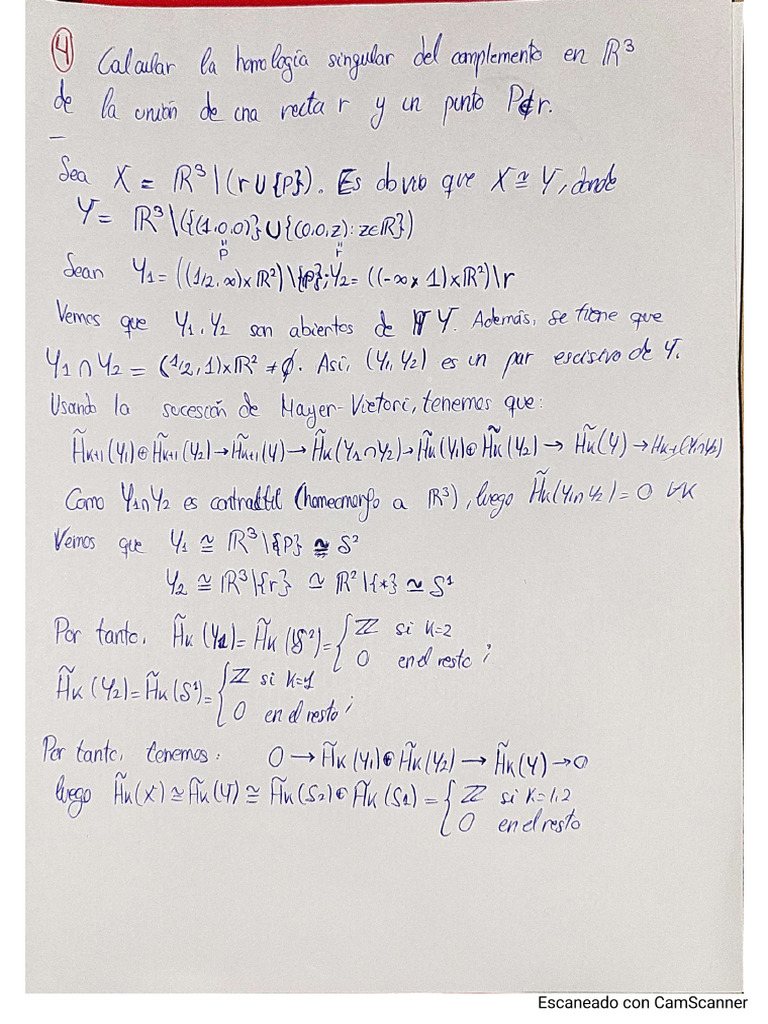 4 Calcular la homología singular del complemento en ℝ³
de la unión de una recta r y un punto P∉r.
Sea X = ℝ³\(r∪{P}). Es obvio que X≅Y, donde
Y = ℝ³\({(1,0,0)}∪{(0,0,z): z∈ℝ})
" p " r
Sean Y₁=((1/2,∞)×ℝ²)\{p}; Y₂=((-∞,1)×ℝ²)\r
Vemos que Y₁,Y₂ son abiertos de Y. Además, se tiene que
Y₁∩Y₂ = (1/2,1)×ℝ² ≠ ∅. Así, (Y₁,Y₂) es un par escisivo de Y.
Usando la sucesión de Mayer-Vietori, tenemos que:
H̃ₖ₊₁(Y₁)⊕H̃ₖ₊₁(Y₂)→H̃ₖ₊₁(Y)→H̃ₖ(Y₁∩Y₂)→H̃ₖ(Y₁)⊕H̃ₖ(Y₂)→H̃ₖ(Y)→Hₖ₋₁(Y₁∩Y₂)
Como Y₁∩Y₂ es contractil (homeomorfo a ℝ³), luego H̃ₖ(Y₁∩Y₂)=0 ∀k
Vemos que Y₁ ≅ ℝ³\{P} ≃ S²
Y₂ ≅ ℝ³\{r} ≃ ℝ²\{*} ≃ S¹
Por tanto, H̃ₖ(Y₁)=H̃ₖ(S²)={ℤ si k=2
0 en el resto ;
H̃ₖ(Y₂)=H̃ₖ(S¹)={ℤ si k=1
0 en el resto ;
Por tanto, tenemos: 0→H̃ₖ(Y₁)⊕H̃ₖ(Y₂)→H̃ₖ(Y)→0
luego H̃ₖ(X)≅H̃ₖ(Y)≅H̃ₖ(S₂)⊕H̃ₖ(S₁)={ℤ si k=1,2
0 en el resto
Escaneado con CamScanner